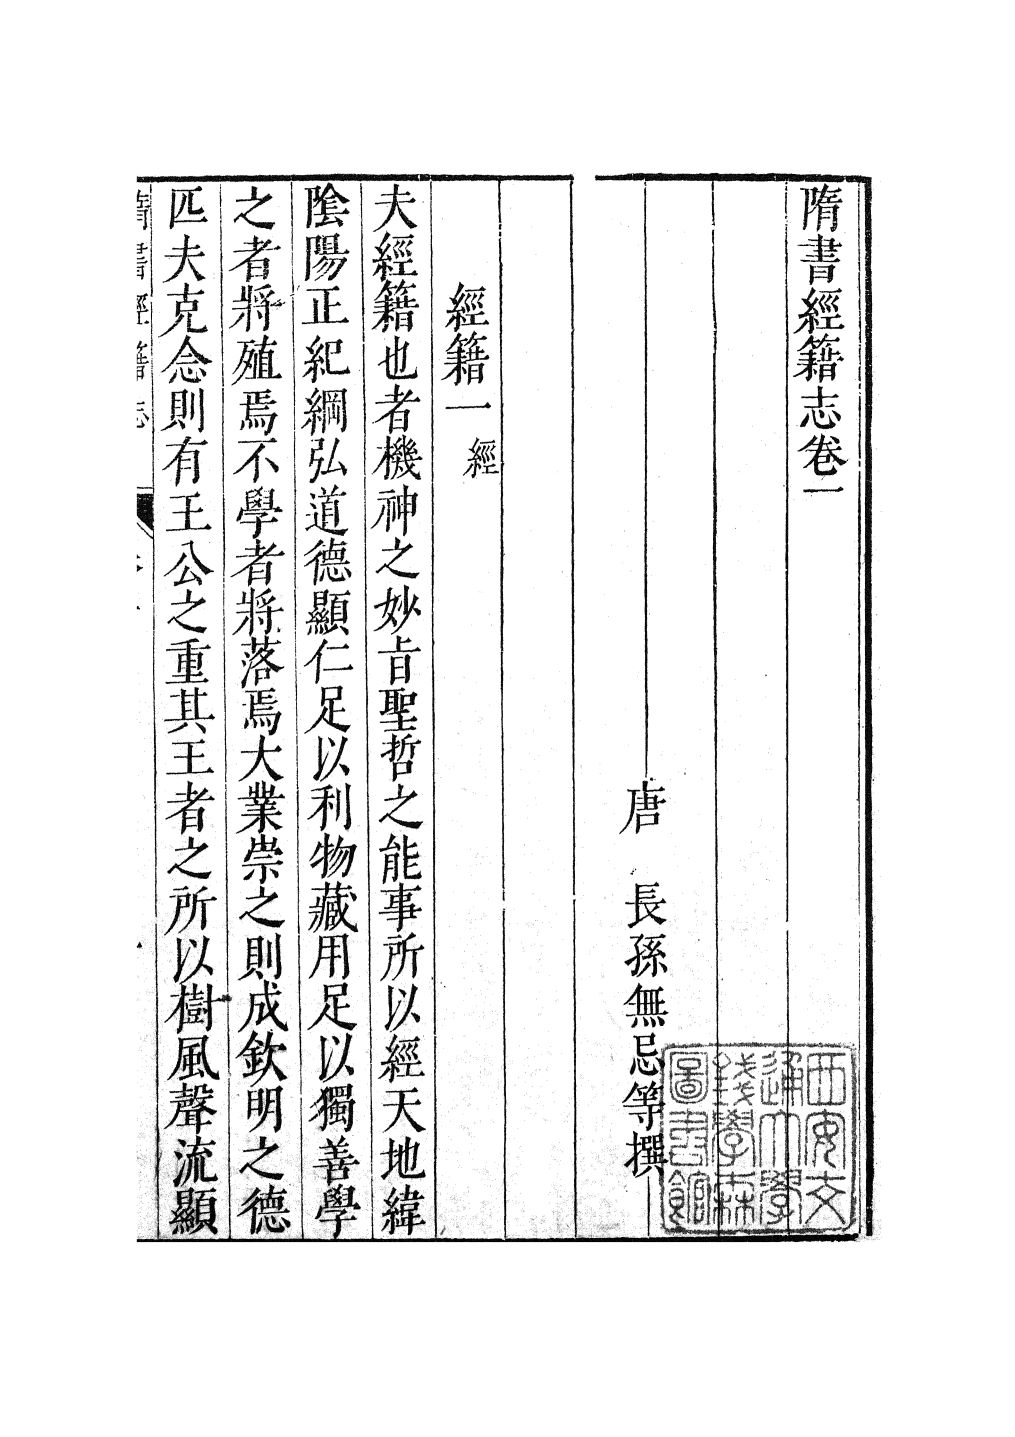 隋書經籍志卷一
唐　長孫無忌等撰
經籍一　經
夫經籍也者機神之妙㫖聖哲之能事所以經天地緯
陰陽正紀綱弘道德顯仁足以利物藏用足以獨善學
之者將殖焉不學者將落焉大業崇之則成欽明之德
匹夫克念則有王公之重其王者之所以樹風聲流顯
隋書經籍志
西安交
通大學
錢學森
圖書館